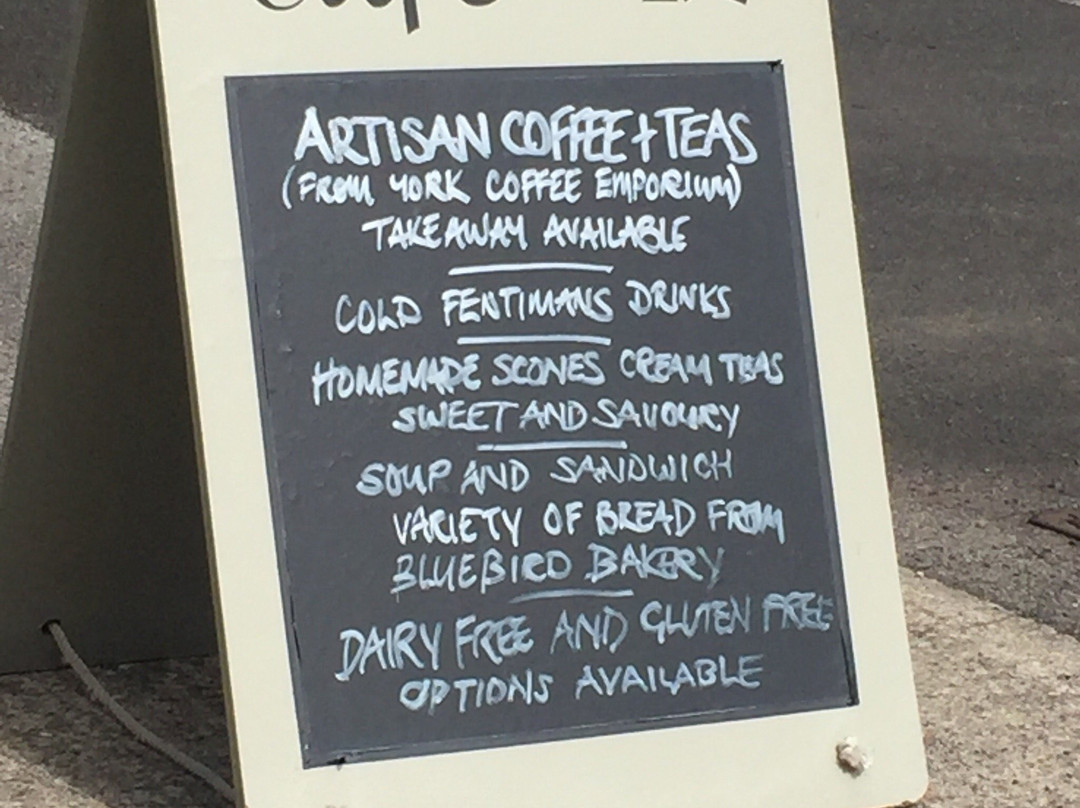 ARTISAN COFFEE + TEAS
(FROM YORK COFFEE EMPORIUM)
TAKEAWAY AVAILABLE
COLD FENTIMANS DRINKS
HOMEMADE SCONES CREAM TEAS
SWEET AND SAVOURY
SOUP AND SANDWICH
VARIETY OF BREAD FROM
BLUEBIRD BAKERY
DAIRY FREE AND GLUTEN FREE
OPTIONS AVAILABLE